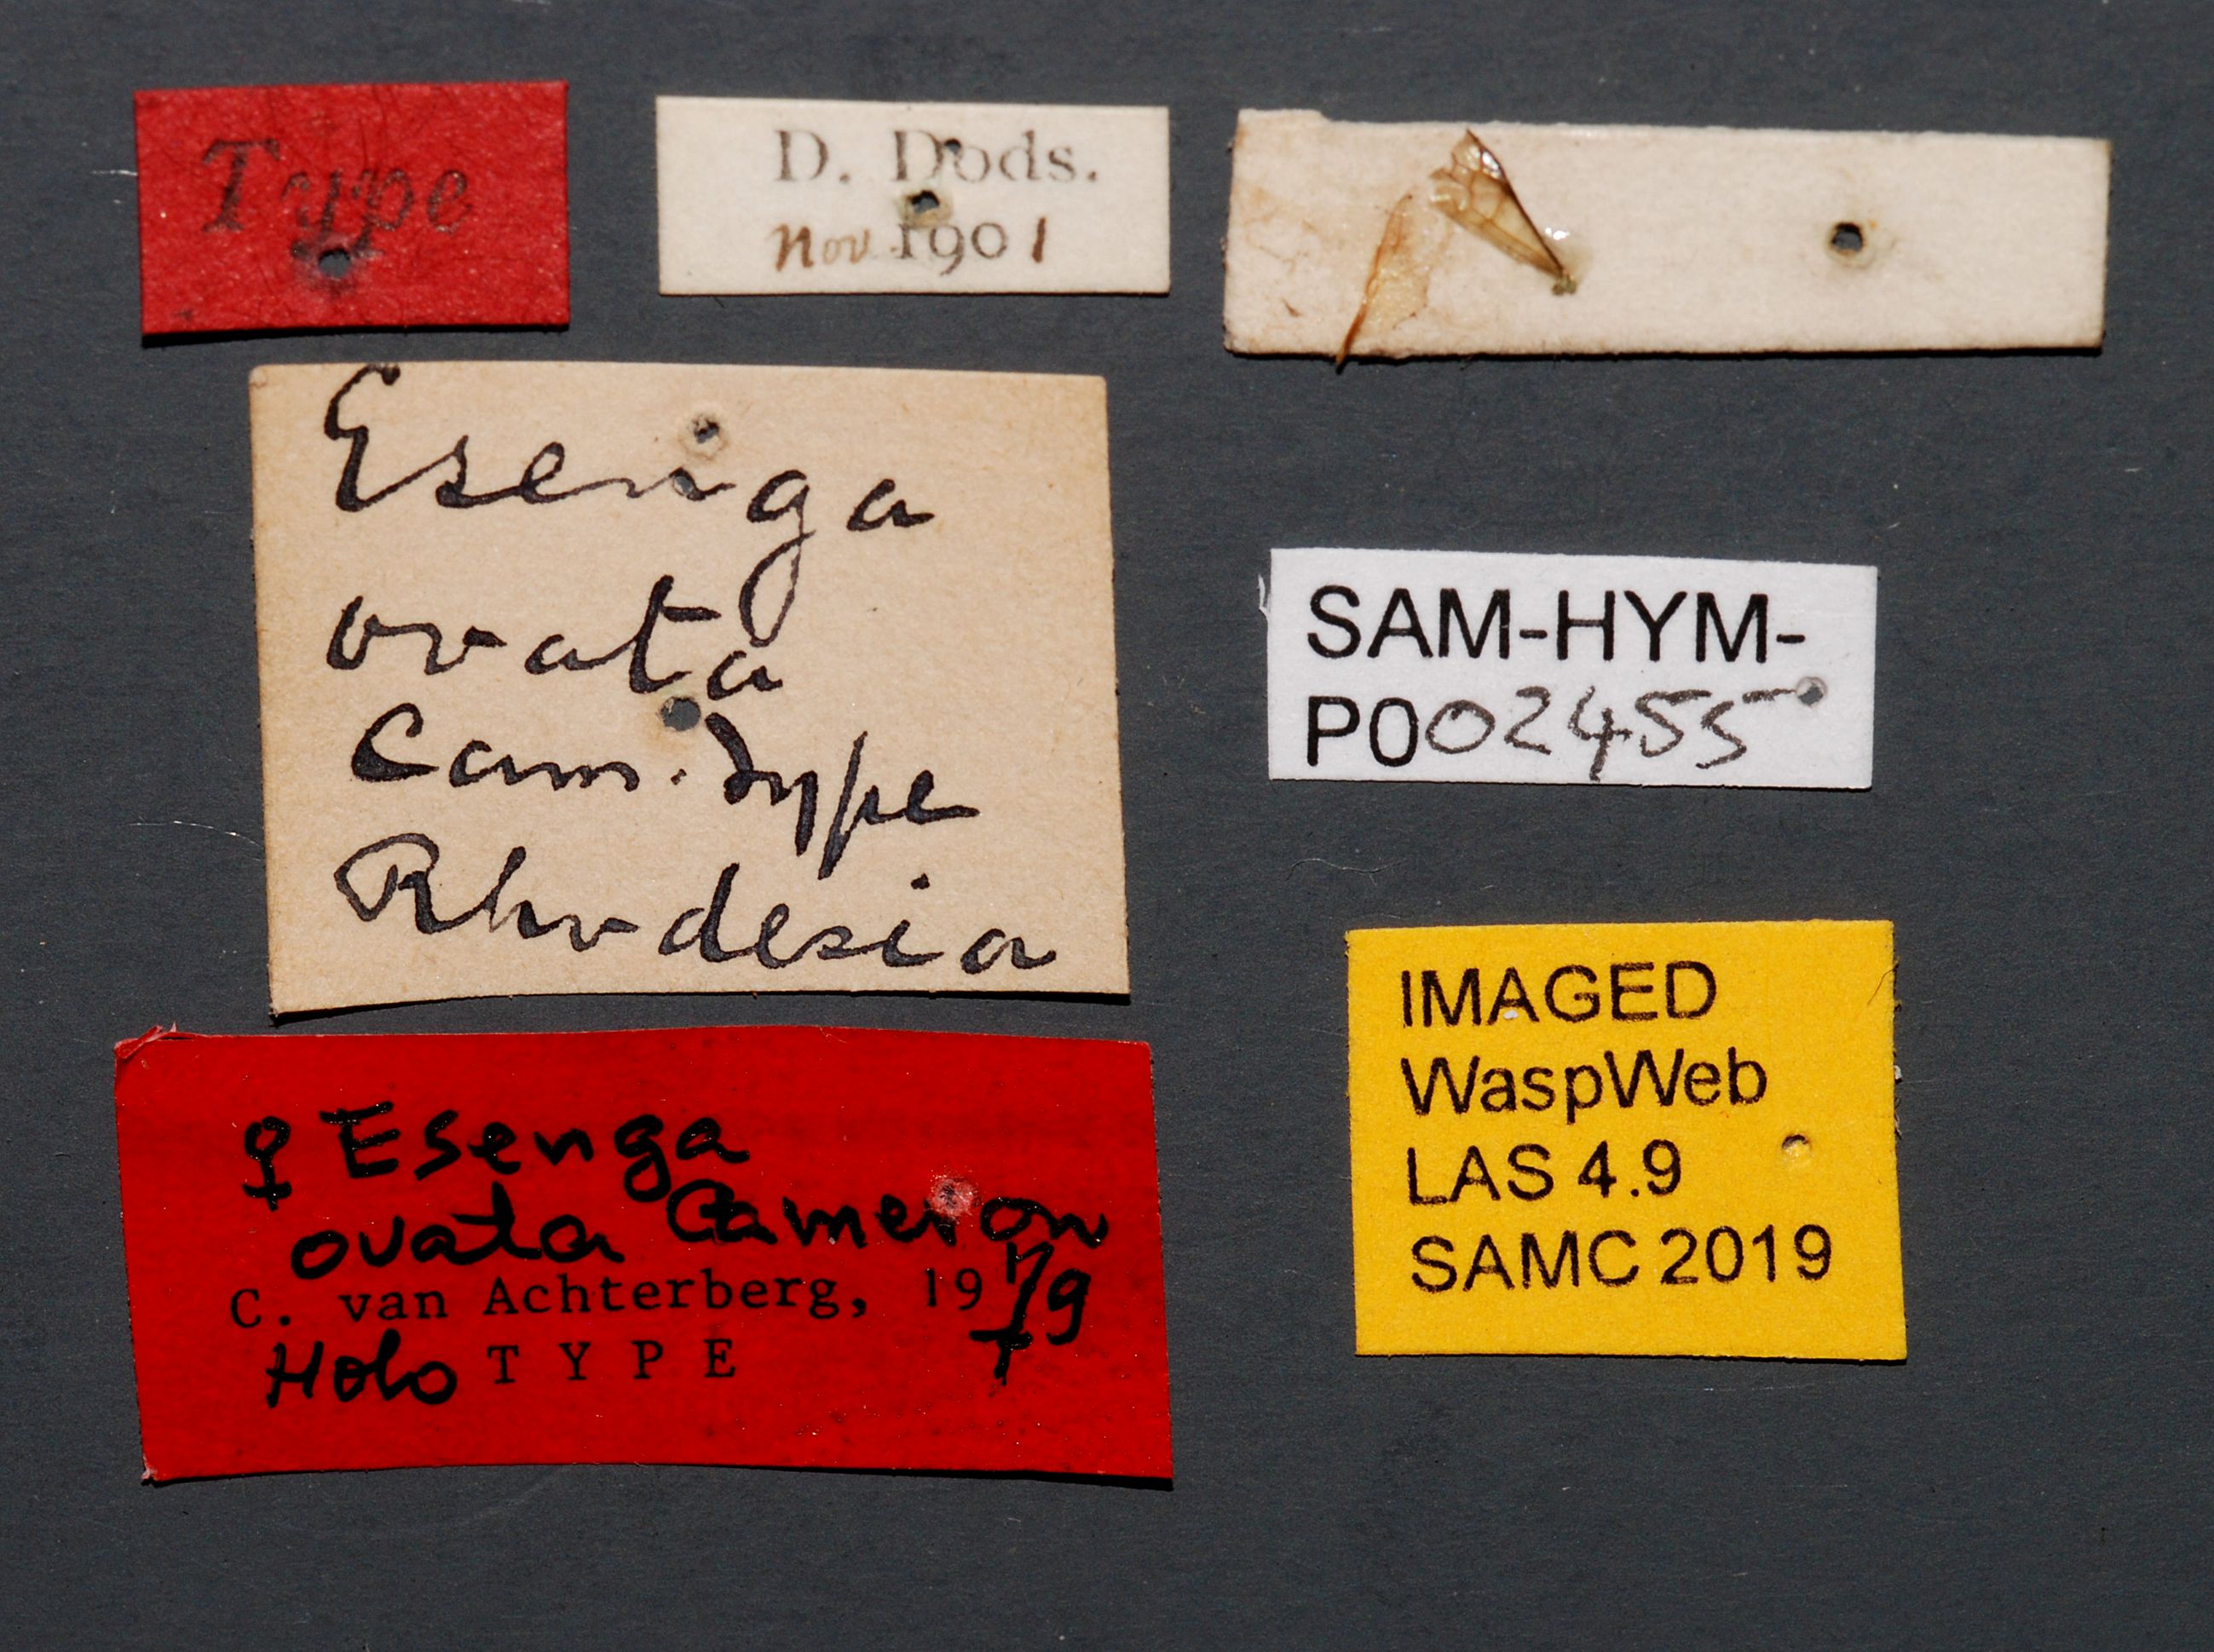 Type
D. Dods.
Nov 1901
Esenga
ovata
Cam. Type
Rhodesia
SAM-HYM-
P002455
♀ Esenga
ovata Cameron
C. van Achterberg, 1979
Holo TYPE ♀
IMAGED
WaspWeb
LAS 4.9
SAMC 2019